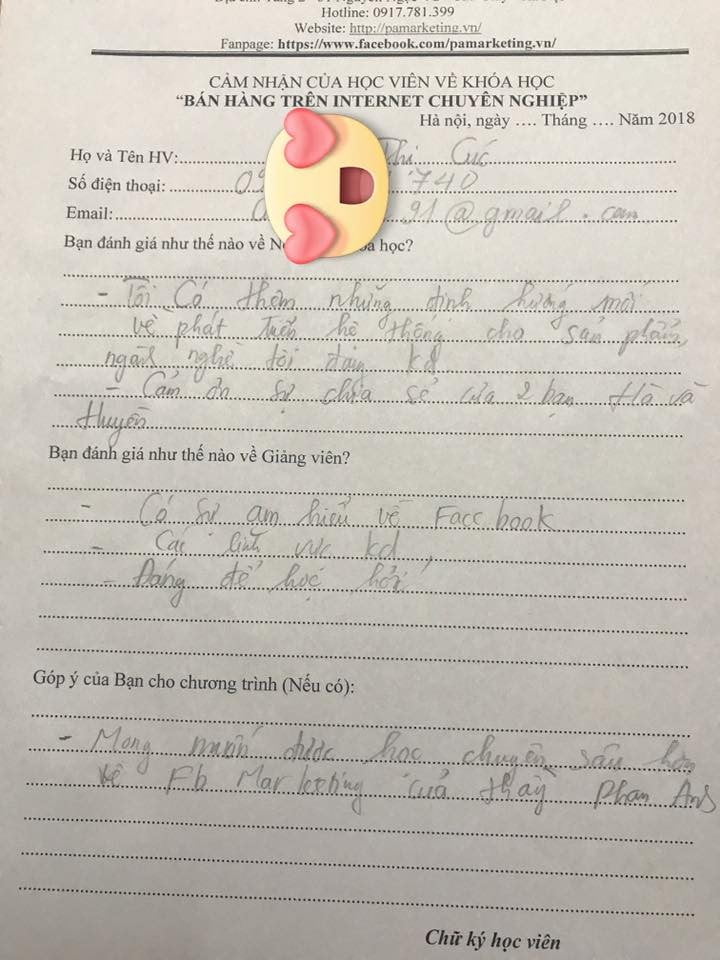 Hotline: 0917.781.399
Website: http://pamarketing.vn/
Fanpage: https://www.facebook.com/pamarketing.vn/
CẢM NHẬN CỦA HỌC VIÊN VỀ KHÓA HỌC
“BÁN HÀNG TRÊN INTERNET CHUYÊN NGHIỆP”
Hà nội, ngày .... Tháng .... Năm 2018
Họ và Tên HV: Thị Cúc
Số điện thoại: 740
Email: 91@gmail.com
Bạn đánh giá như thế nào về học?
- Tôi Có thêm những định hướng mới
về phát triển hệ thống cho sản phẩm,
ngành nghề tôi đang kd
- Cảm ơn sự chia sẻ của 2 bạn Hà và
Huyền
Bạn đánh giá như thế nào về Giảng viên?
- Có sự am hiểu về Facebook
- Các lĩnh vực kd,
- Đáng để học hỏi
Góp ý của Bạn cho chương trình (Nếu có):
- Mong muốn được học chuyên sâu hơn
về Fb Marketing của thầy Phan Anh
Chữ ký học viên